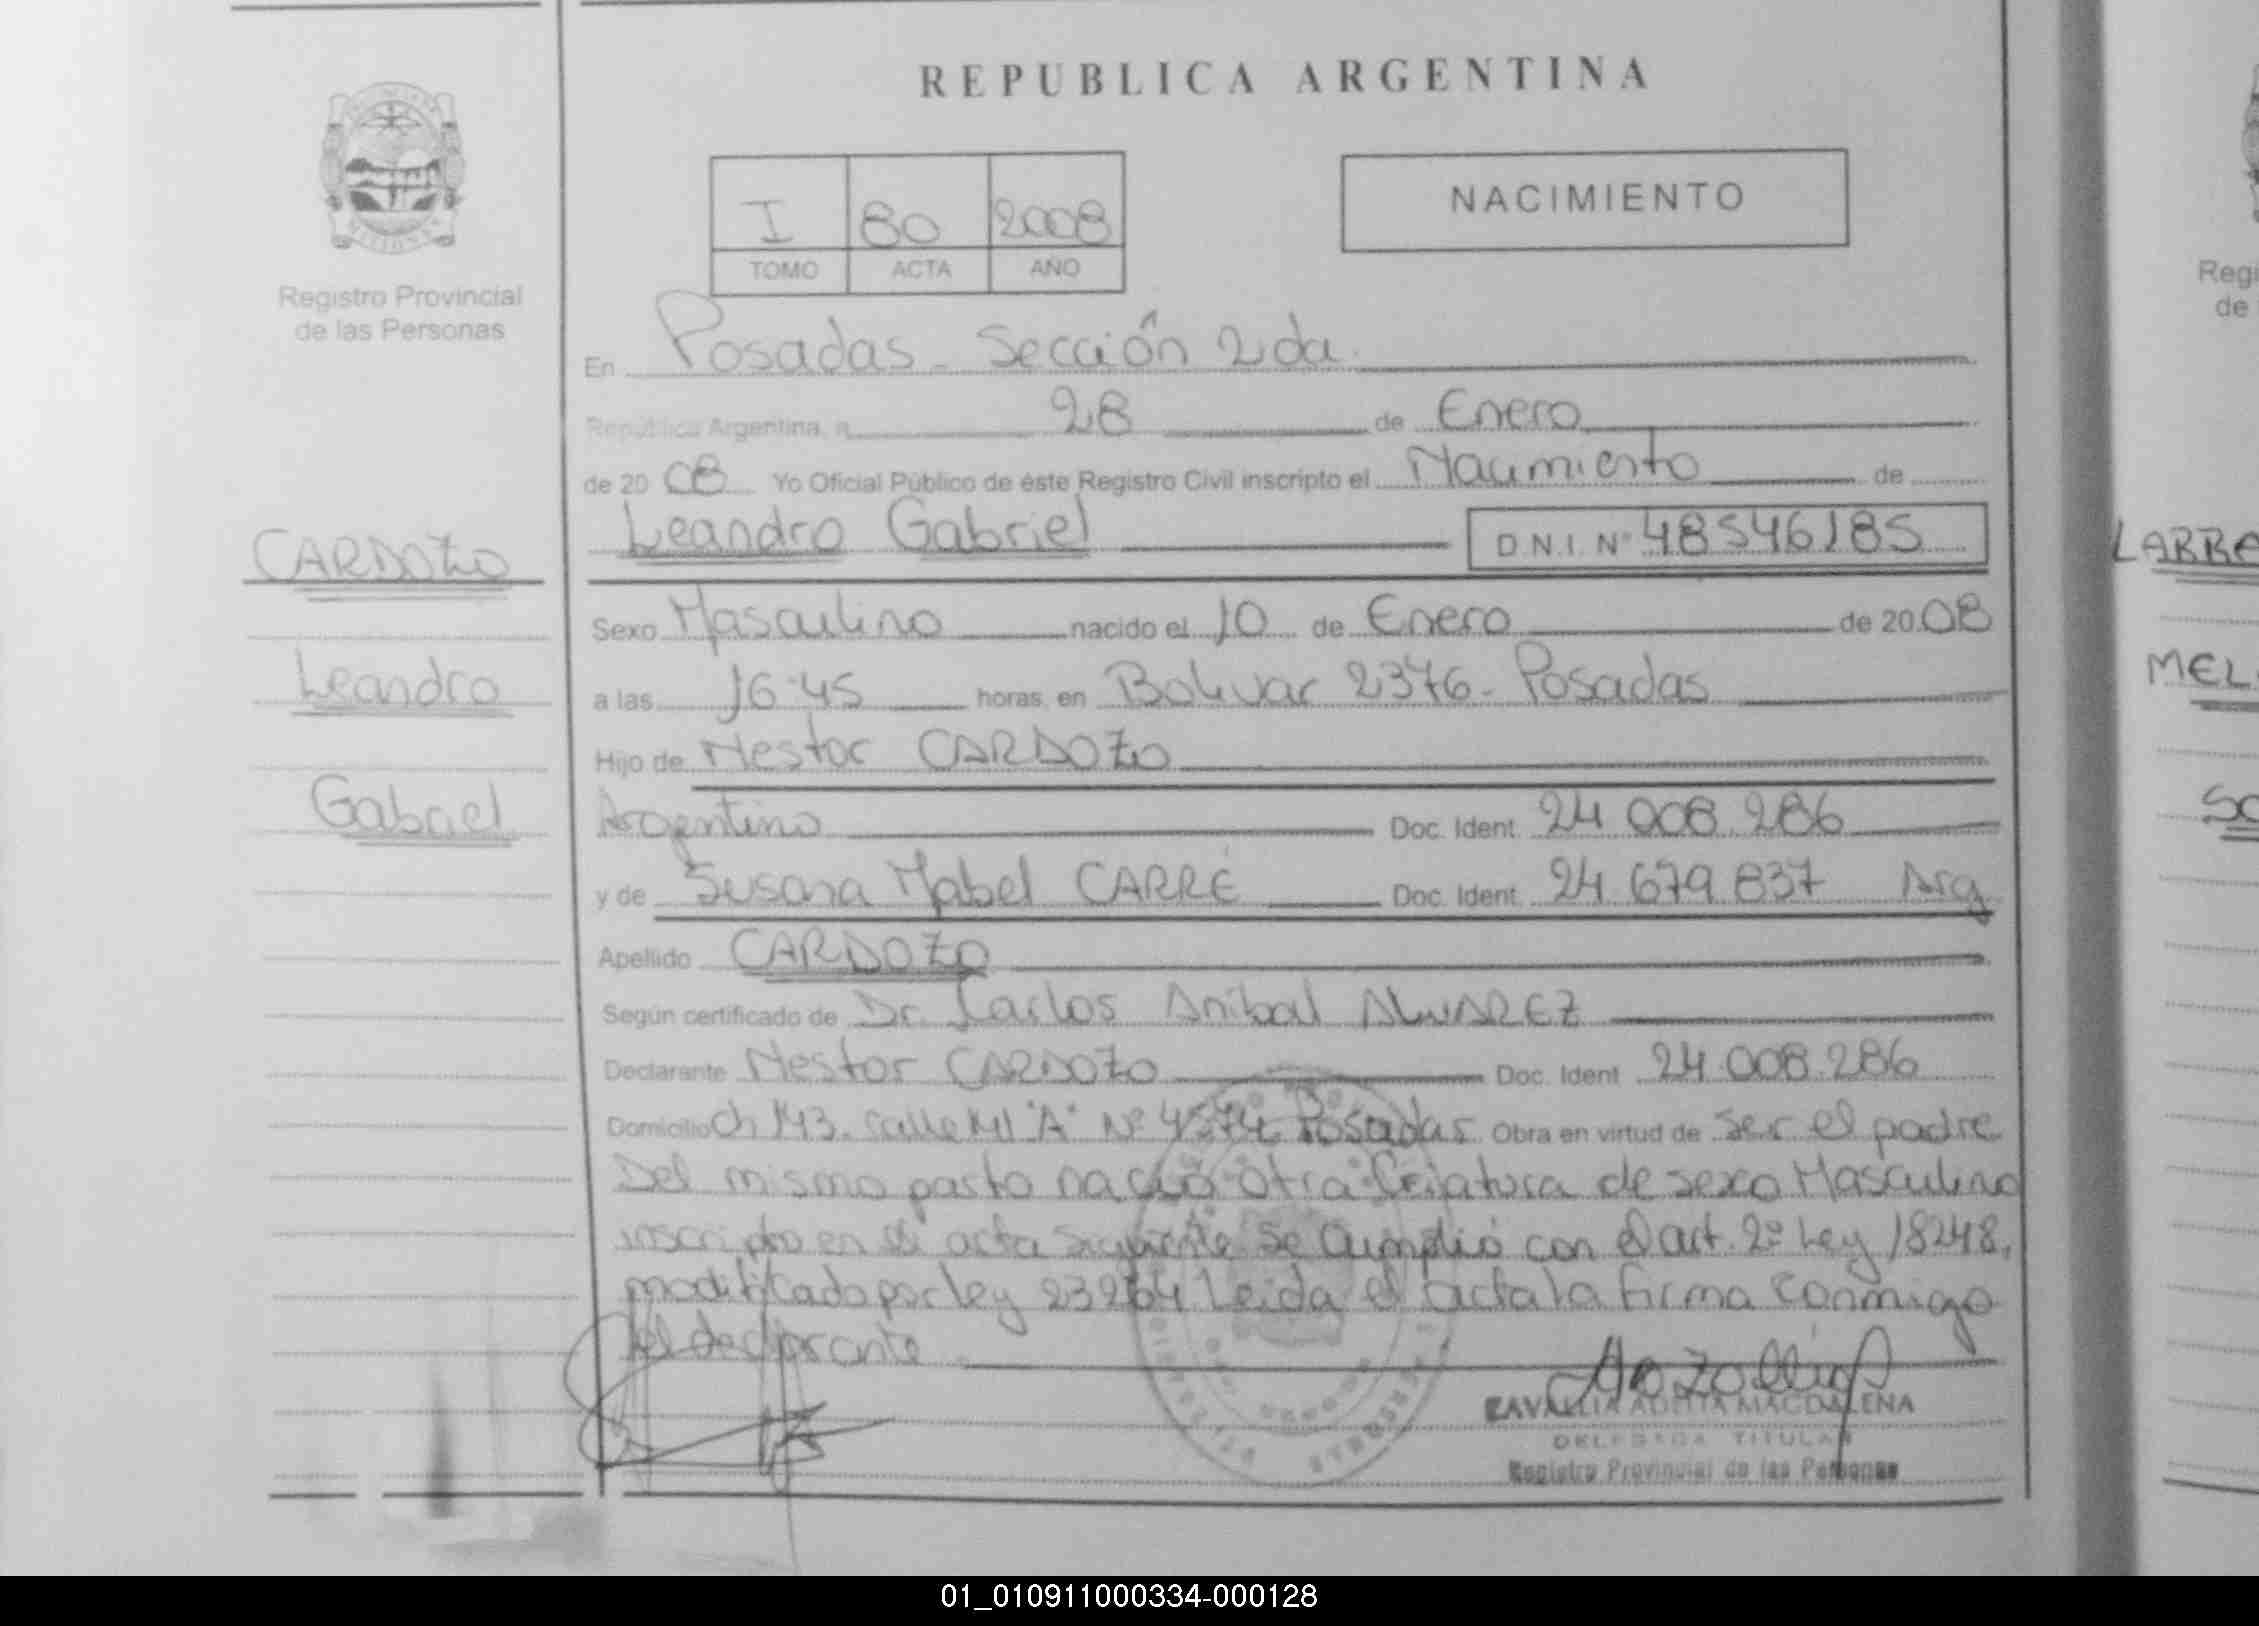 REPUBLICA ARGENTINA
MISIONES
Registro Provincial
de las Personas
I 80 2008
TOMO ACTA AÑO
NACIMIENTO
En Posadas - Sección 2da.
República Argentina, a 28 de Enero
de 20 08 Yo Oficial Público de éste Registro Civil inscripto el Nacimiento de
Leandro Gabriel D.N.I. Nº 48546185
CARDOZO
Leandro
Gabriel
Sexo Masculino nacido el 10 de Enero de 20 08
a las 16.45 horas, en Bolivar 2376 - Posadas
Hijo de Nestor CARDOZO
Argentino Doc. Ident. 24.008.286
y de Susana Mabel CARRÉ Doc. Ident. 24.679.837 Arg
Apellido CARDOZO
Según certificado de Dr. Carlos Anibal ALVAREZ
Declarante Nestor CARDOZO Doc. Ident. 24.008.286
Domicilio Ch 143. Calle "A" Nº 4574 Posadas Obra en virtud de ser el padre
Del mismo parto nació otra Criatura de sexo Masculino
inscripto en el acta siguiente Se Cumplió con el art. 2º Ley 18248,
modificado por ley 23264 Leida el acta la firma conmigo
el declarante
ZAVALLIA MAGDALENA
DELEGADA TITULAR
Registro Provincial de las Personas
Regi
de
LARRE
MEL
SO
01_010911000334-000128